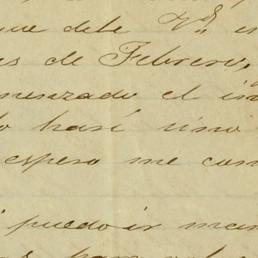 que debe Vd. en
es de Febrero,
menzado el in
lo haré uno
espero me con
puedo ir man